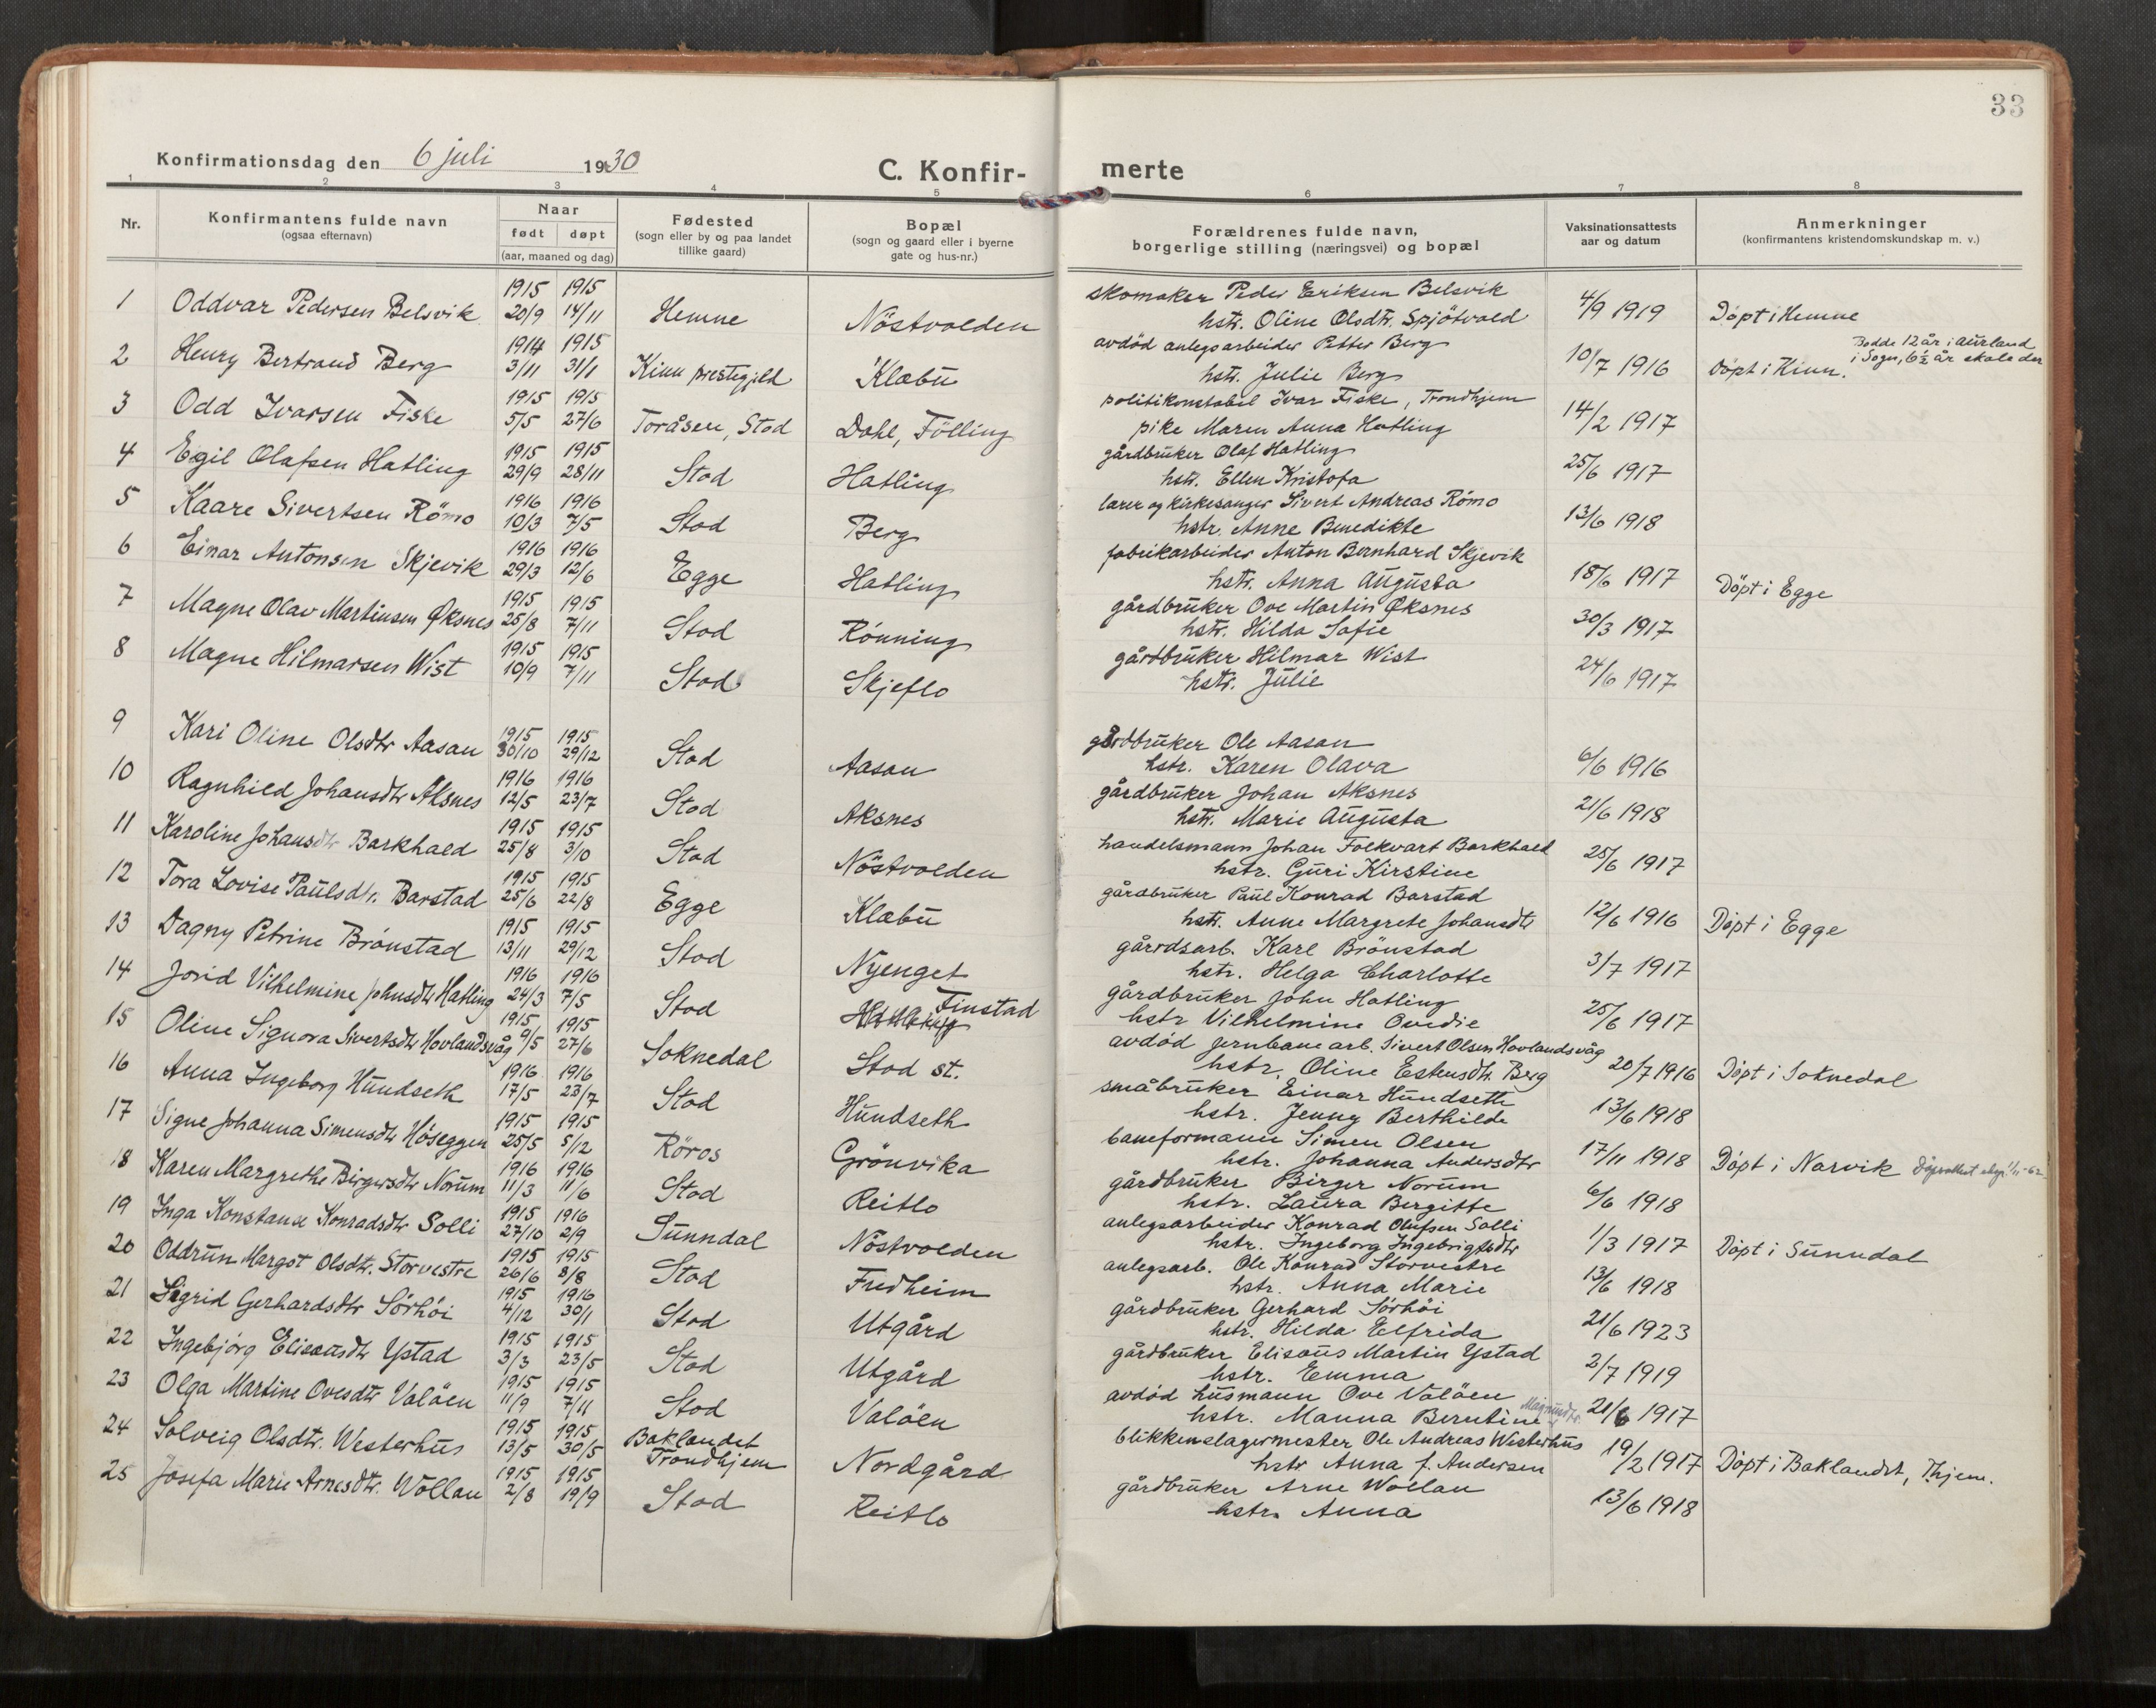 33
Konfirmationsdag den 6 juli 1930
C. Konfir-
merte
1 2 3 4 5 6 7 8
Nr.
Konfirmantens fulde navn
(ogsaa efternavn)
Naar
født døpt
(aar, maaned og dag)
Fødested
(sogn eller by og paa landet
tillike gaard)
Bopæl
(sogn og gaard eller i byerne
gate og hus-nr.)
Forældrenes fulde navn,
borgerlige stilling (næringsvei) og bopæl
Vaksinationsattests
aar og datum
Anmerkninger
(konfirmantens kristendomskundskap m. v.)
1915 1915 skomaker Peder Eriksen Belsvik
1 Oddvar Pedersen Belsvik 20/9 14/11 Hemne Nöstvolden hstr. Oline Olsdtr. Spjötvold 4/9 1919 Döpt i Hemne
1914 1915 avdöd anlegsarbeider Petter Berg Bodde 12 år i Aurland
2 Henry Bertrand Berg 3/11 31/1 Kinn prestegjeld Klæbu hstr. Julie Berg 10/7 1916 Döpt i Kinn. i Sogn, 6½ år skole der
1915 1915 politikonstabel Ivar Fiske, Trondhjem
3 Odd Ivarsen Fiske 5/5 27/6 Toråsen, Stod Dahl, Fölling pike Maren Anna Hatling 14/2 1917
1915 1915 gårdbruker Olaf Hatling
4 Egil Olafsen Hatling 29/9 28/11 Stod Hatling hstr. Ellen Kristofa 25/6 1917
1916 1916 lærer og kirkesanger Sivert Andreas Römo
5 Kaare Sivertsen Römo 10/3 7/5 Stod Berg hstr. Anne Benedikte 13/6 1918
1916 1916 fabrikarbeider Anton Bernhard Skjevik
6 Einar Antonsen Skjevik 29/3 12/6 Egge Hatling hstr. Anna Augusta 18/6 1917 Döpt i Egge
1915 1915 gårdbruker Ove Martin Øksnes
7 Magne Olav Martinsen Øksnes 25/8 7/11 Stod Rönning hstr. Hilda Sofie 30/3 1917
1915 1915 gårdbruker Hilmar Wist
8 Magne Hilmarsen Wist 10/9 7/11 Stod Skjeflo hstr. Julie 24/6 1917
1915 1915 gårdbruker Ole Aasan
9 Kari Oline Olsdtr Aasan 30/10 29/12 Stod Aasan hstr. Karen Olava 6/6 1916
1916 1916 gårdbruker Johan Aksnes
10 Ragnhild Johansdtr Aksnes 12/5 23/7 Stod Aksnes hstr. Marie Augusta 21/6 1918
1915 1915 handelsmann Johan Folkvart Barkhald
11 Karoline Johansdtr Barkhald 25/8 3/10 Stod Nöstvolden hstr. Guri Kirstine 25/6 1917
1915 1915 gårdbruker Paul Konrad Barstad
12 Tora Lovise Paulsdtr. Barstad 25/6 22/8 Egge Klæbu hstr. Anne Margrete Johansdtr 12/6 1916 Döpt i Egge
1915 1915 gårdsarb. Karl Brönstad
13 Dagny Petrine Brönstad 13/11 29/12 Stod Nyenget hstr. Helga Charlotte 3/7 1917
1916 1916 gårdbruker John Hatling
14 Jorid Vilhelmine Johnsdtr Hatling 24/3 7/5 Stod Hatling Finstad hstr Vilhelmine Ovedie 25/6 1917
1915 1915 avdöd jernbanearb. Sivert Olsen Hovlandsvåg
15 Oline Signora Sivertsdtr Hovlandsvåg 9/5 27/6 Soknedal Stod st. hstr. Oline Estensdtr. Berg 20/7 1916 Döpt i Soknedal
1916 1916 småbruker Einar Hundseth
16 Anna Ingeborg Hundseth 17/5 23/7 Stod Hundseth hstr. Jenny Berthilde 13/6 1918
1915 1915 baneformann Simen Olsen
17 Signe Johanna Simensdtr Höseggen 25/5 5/12 Röros Grönvika hstr. Johanna Andersdtr 17/11 1918 Döpt i Narvik
1916 1916 gårdbruker Birger Norum
18 Karen Margrethe Birgersdtr Norum 11/3 11/6 Stod Reitlo hstr. Laura Bergitte 6/6 1918
1915 1916 anlegsarbeider Konrad Olufsen Solli
19 Inga Konstanse Konradsdtr Solli 27/10 2/9 Sunndal Nöstvolden hstr. Ingeborg Ingebrigtsdtr 1/3 1917 Döpt i Sunndal
1915 1915 anlegsarb. Ole Konrad Storvestre
20 Oddrun Margot Olsdtr. Storvestre 26/6 8/8 Stod Fredheim hstr. Anna Marie 13/6 1918
1915 1916 gårdbruker Gerhard Sörhöi
21 Sigrid Gerhardsdtr Sörhöi 4/12 30/1 Stod Utgård hstr. Hilda Elfrida 21/6 1923
1915 1915 gårdbruker Elisæus Martin Ystad
22 Ingebjörg Elisæusdtr Ystad 3/3 23/5 Stod Utgård hstr. Emma 2/7 1919
1915 1915 avdöd husmann Ove Valöen
23 Olga Martine Ovesdtr Valöen 11/9 7/11 Stod Valöen hstr. Manna Berntine 21/6 1917
1915 1915 Baklandet blikkenslagermester Ole Andreas Westerhus
24 Solveig Olsdtr. Westerhus 13/5 30/5 Trondhjem Nordgård hstr Anna f. Andersen 19/2 1917 Döpt i Baklandet, Thjem.
1915 1915 gårdbruker Arne Wollan
25 Josefa Marie Arnesdtr. Wollan 2/8 19/9 Stod Reitlo hstr. Anna 13/6 1918